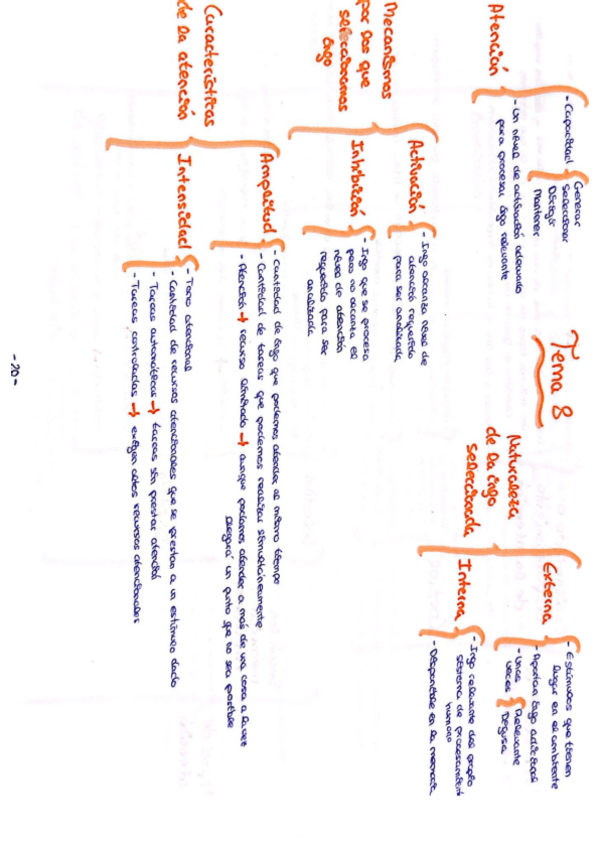 Tema 8
Atención
- Capacidad
Generar
Seleccionar
Dirigir
Mantener
- Un nivel de activación adecuado
para procesar info relevante
Naturaleza
de la info
seleccionada
Externa
- Estímulos que tienen
lugar en el ambiente
- Aportan info adicional
- Unas
veces
Relevante
Difusa
Interna
- Info relevante del propio
sistema de procesamient
humano
- Disponible en la memoria
Mecanismos
por los que
seleccionamos
info
Activación
- Info alcanza nivel de
atención requerido
para ser analizada
Inhibición
- Info que se procesa
pero no alcanza el
nivel de atención
requerido para ser
analizada
Características
de la atención
Amplitud
- Cantidad de info que podemos atender al mismo tiempo
- Cantidad de tareas que podemos realizar simultáneamente
- Atención → recurso limitado → aunque podamos atender a más de una cosa a la vez
llegará un punto que no sea posible
Intensidad
- Tono atencional
- Cantidad de recursos atencionales que se prestan a un estímulo dado
- Tareas automáticas → tareas sin prestar atención
- Tareas controladas → exigen altos recursos atencionales
-20-